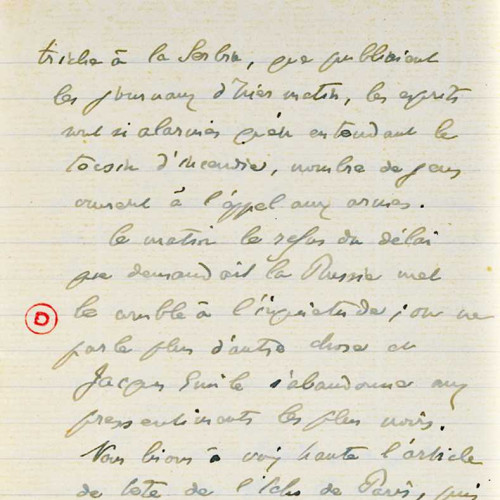 triche à la Serbie, que publiaient
les journaux d'hier matin, les esprits
sont si alarmés qu'en entendant le
tocsin d'incendie, nombre de gens
crurent à l'appel aux armes.
Ce matin le refus du délai
que demandait la Russie met
le comble à l'inquiétude ; on ne
parle plus d'autre chose et
Jacques Emile s'abandonne aux
pressentiments les plus noirs.
Nous lisons à voix haute l'article
de tête de l'Echo de Paris, puis
D